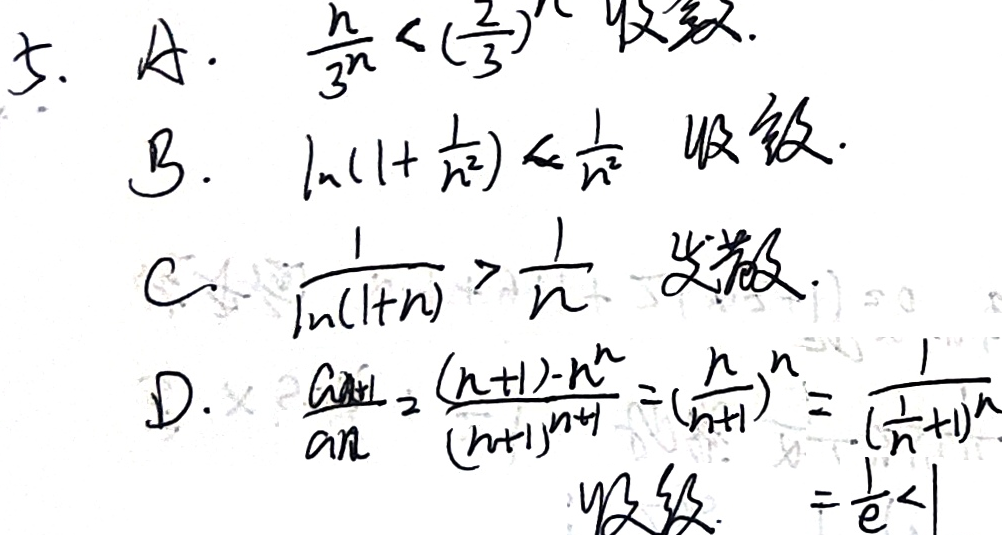 5. A. n/3^n < (2/3)^n 收敛.
B. ln(1+1/n²) < 1/n² 收敛.
C. 1/ln(1+n) > 1/n 发散.
D. a_{n+1}/a_n = (n+1)·n^n/(n+1)^{n+1} = (n/(n+1))^n = 1/(1/n+1)^n
收级. = 1/e < 1